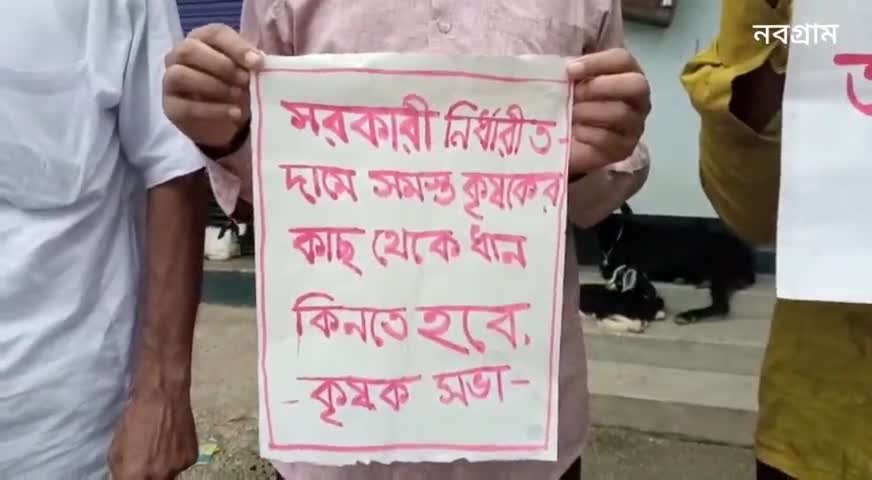 নবগ্রাম
সরকারী নির্ধারীত-
দামে সমস্ত কৃষকের
কাছ থেকে ধান
কিনতে হবে.
- কৃষক সভা -